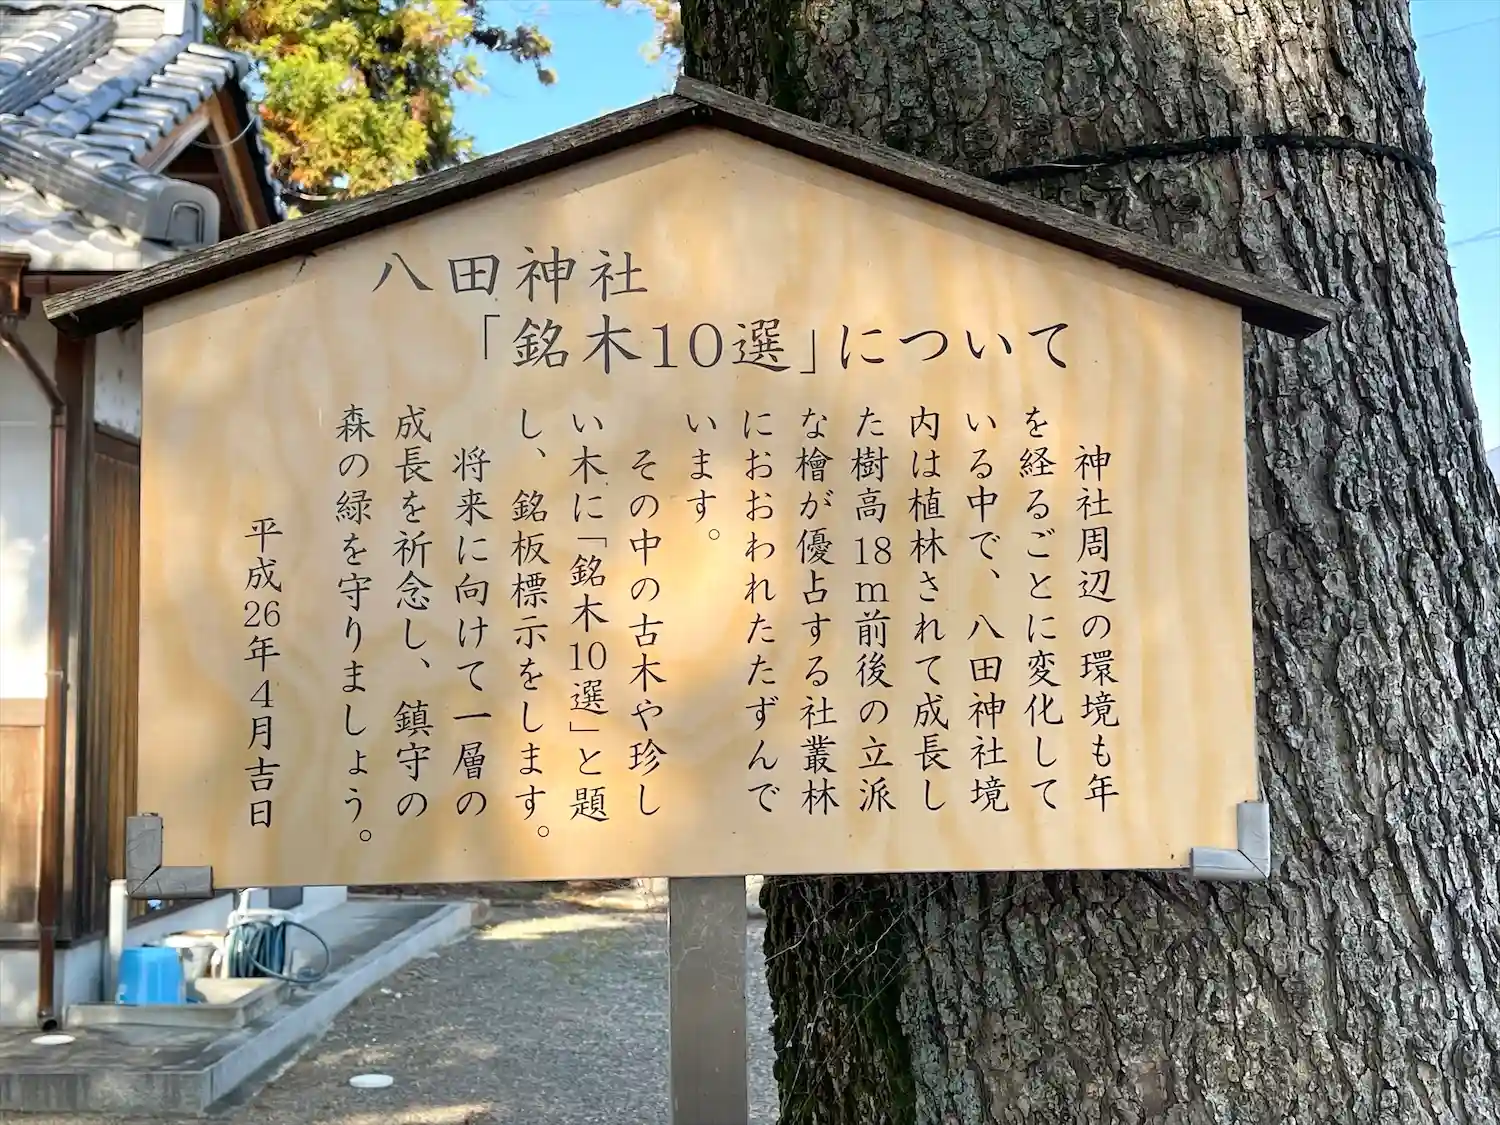 八田神社
「銘木10選」について
神社周辺の環境も年
を経るごとに変化して
いる中で、八田神社境
内は植林されて成長し
た樹高18m前後の立派
な檜が優占する社叢林
におおわれたたずんで
います。
その中の古木や珍し
い木に「銘木10選」と題
し、銘板標示をします。
将来に向けて一層の
成長を祈念し、鎮守の
森の緑を守りましょう。
平成26年4月吉日